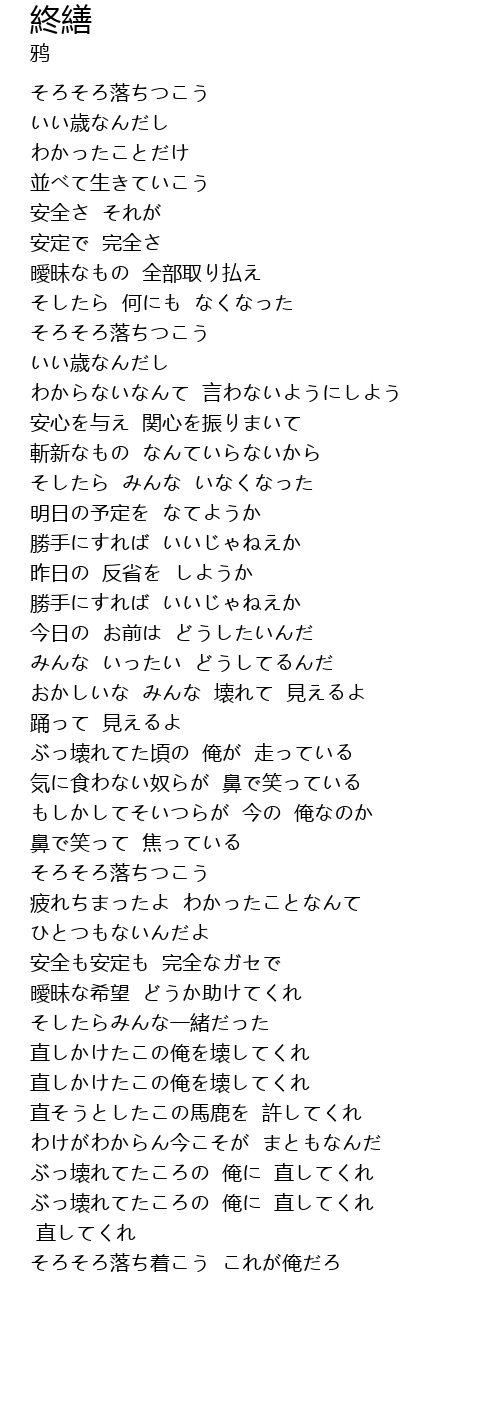 終繕
鸦
そろそろ落ちつこう
いい歳なんだし
わかったことだけ
並べて生きていこう
安全さ それが
安定で 完全さ
曖昧なもの 全部取り払え
そしたら 何にも なくなった
そろそろ落ちつこう
いい歳なんだし
わからないなんて 言わないようにしよう
安心を与え 関心を振りまいて
斬新なもの なんていらないから
そしたら みんな いなくなった
明日の予定を なてようか
勝手にすれば いいじゃねえか
昨日の 反省を しようか
勝手にすれば いいじゃねえか
今日の お前は どうしたいんだ
みんな いったい どうしてるんだ
おかしいな みんな 壊れて 見えるよ
踊って 見えるよ
ぶっ壊れてた頃の 俺が 走っている
気に食わない奴らが 鼻で笑っている
もしかしてそいつらが 今の 俺なのか
鼻で笑って 焦っている
そろそろ落ちつこう
疲れちまったよ わかったことなんて
ひとつもないんだよ
安全も安定も 完全なガセで
曖昧な希望 どうか助けてくれ
そしたらみんな一緒だった
直しかけたこの俺を壊してくれ
直しかけたこの俺を壊してくれ
直そうとしたこの馬鹿を 許してくれ
わけがわからん今こそが まともなんだ
ぶっ壊れてたころの 俺に 直してくれ
ぶっ壊れてたころの 俺に 直してくれ
直してくれ
そろそろ落ち着こう これが俺だろ